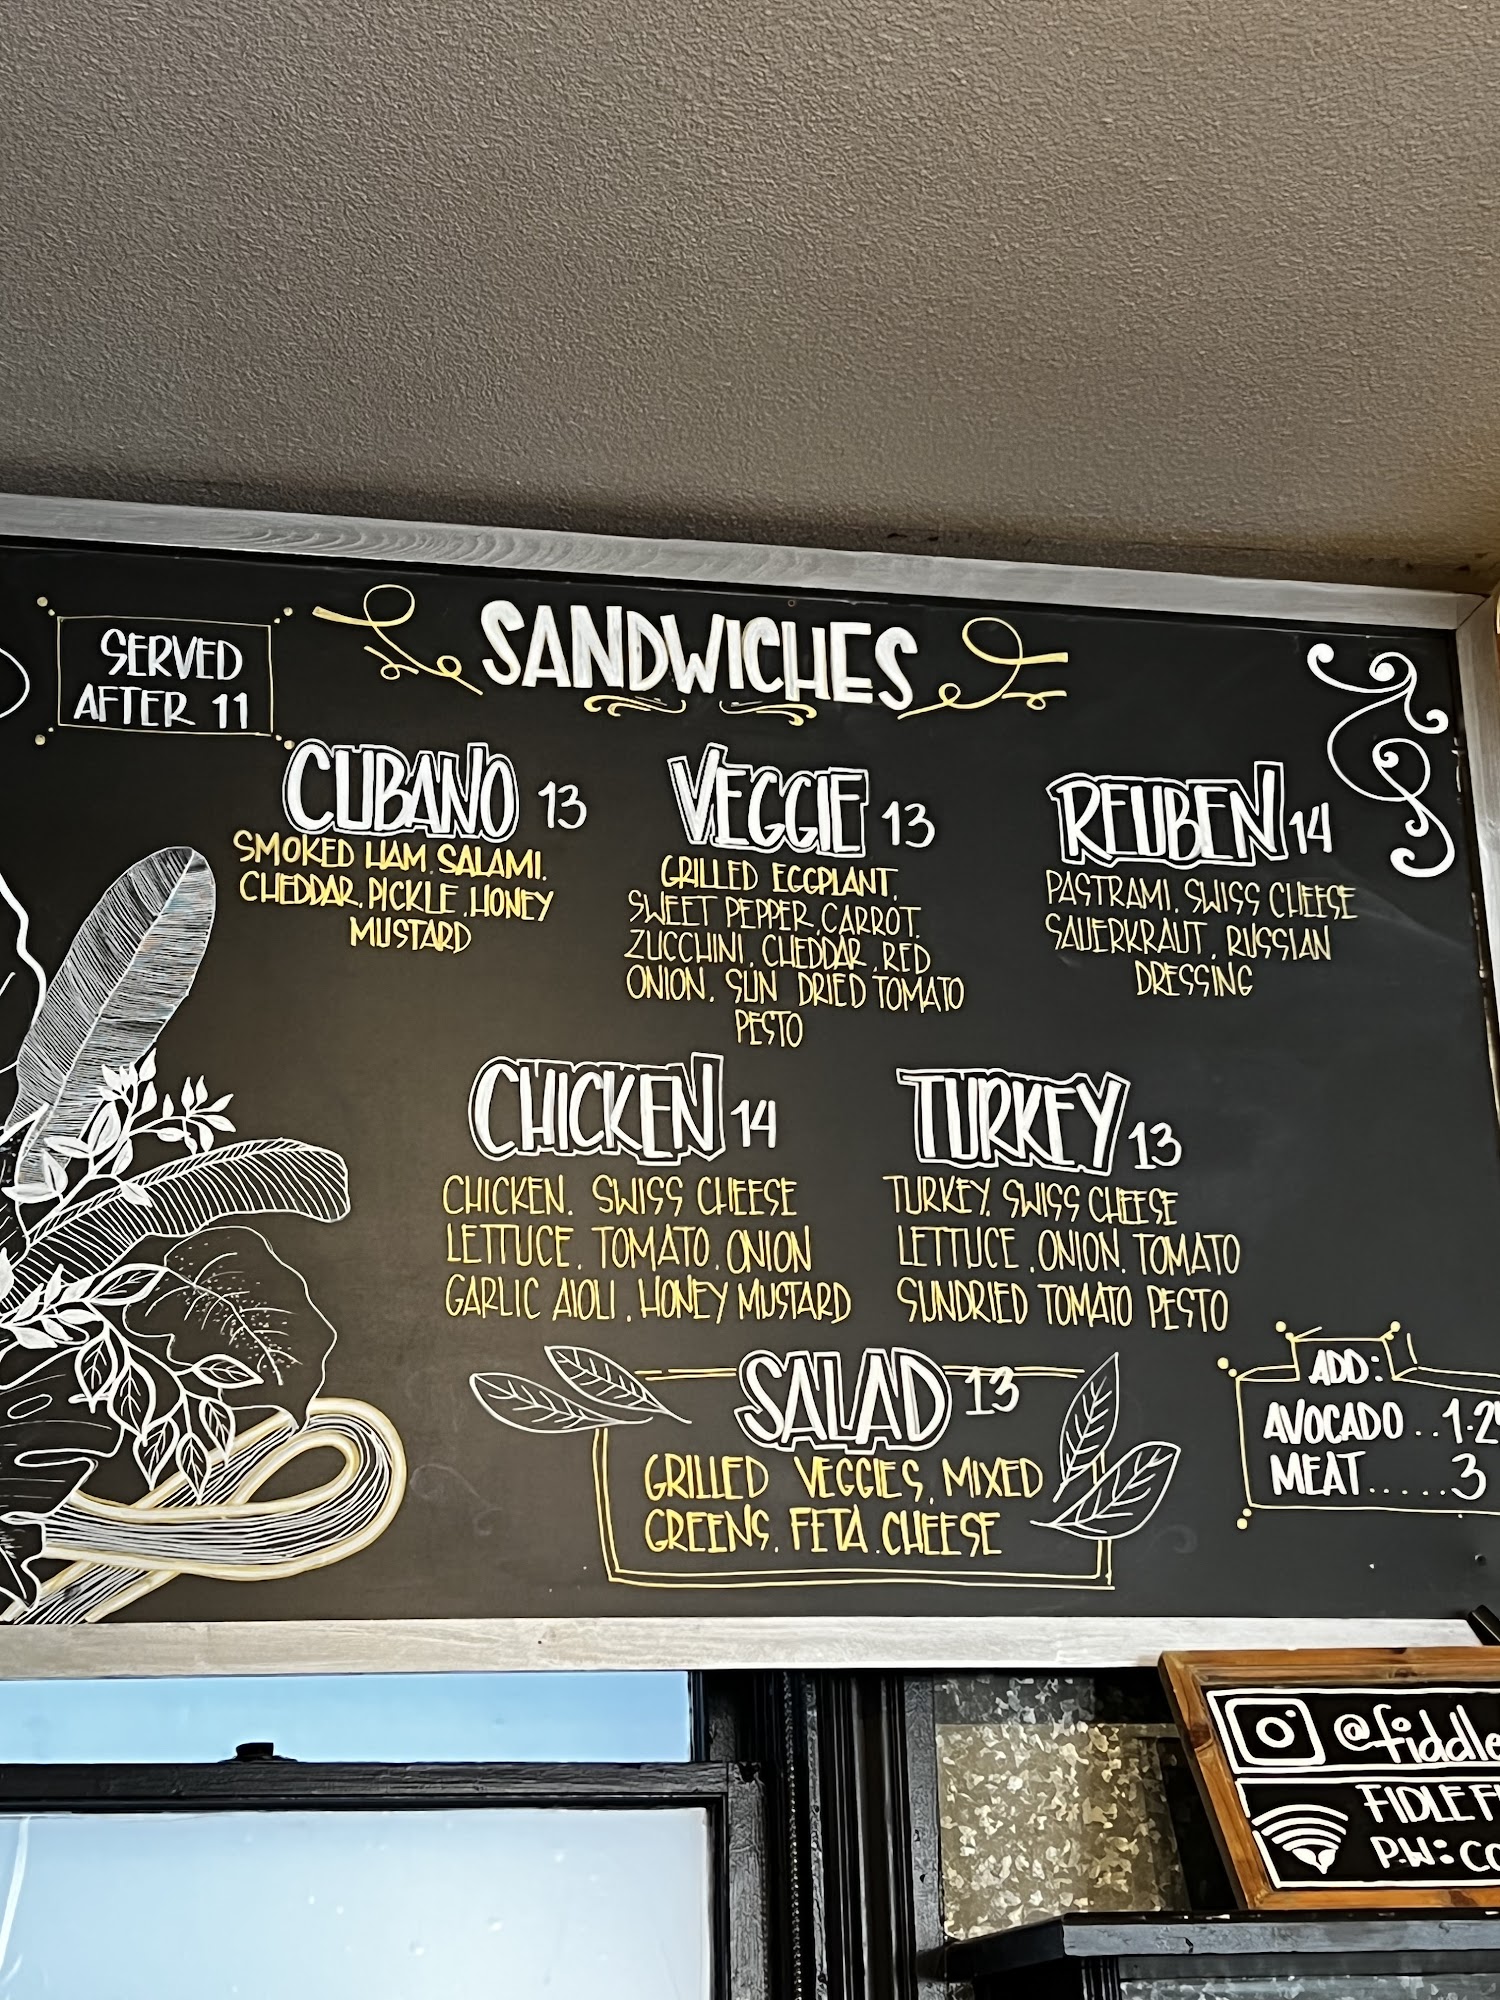 SERVED
AFTER 11
SANDWICHES
CUBANO 13
SMOKED HAM, SALAMI,
CHEDDAR, PICKLE, HONEY
MUSTARD
VEGGIE 13
GRILLED EGGPLANT,
SWEET PEPPER, CARROT,
ZUCCHINI, CHEDDAR, RED
ONION, SUN DRIED TOMATO
PESTO
REUBEN 14
PASTRAMI, SWISS CHEESE
SAUERKRAUT, RUSSIAN
DRESSING
CHICKEN 14
CHICKEN, SWISS CHEESE
LETTUCE, TOMATO, ONION
GARLIC AIOLI, HONEY MUSTARD
TURKEY 13
TURKEY, SWISS CHEESE
LETTUCE, ONION, TOMATO
SUNDRIED TOMATO PESTO
SALAD 13
GRILLED VEGGIES, MIXED
GREENS, FETA, CHEESE
ADD:
AVOCADO..
MEAT.....3
@fiddle
FIDLE
P.W: